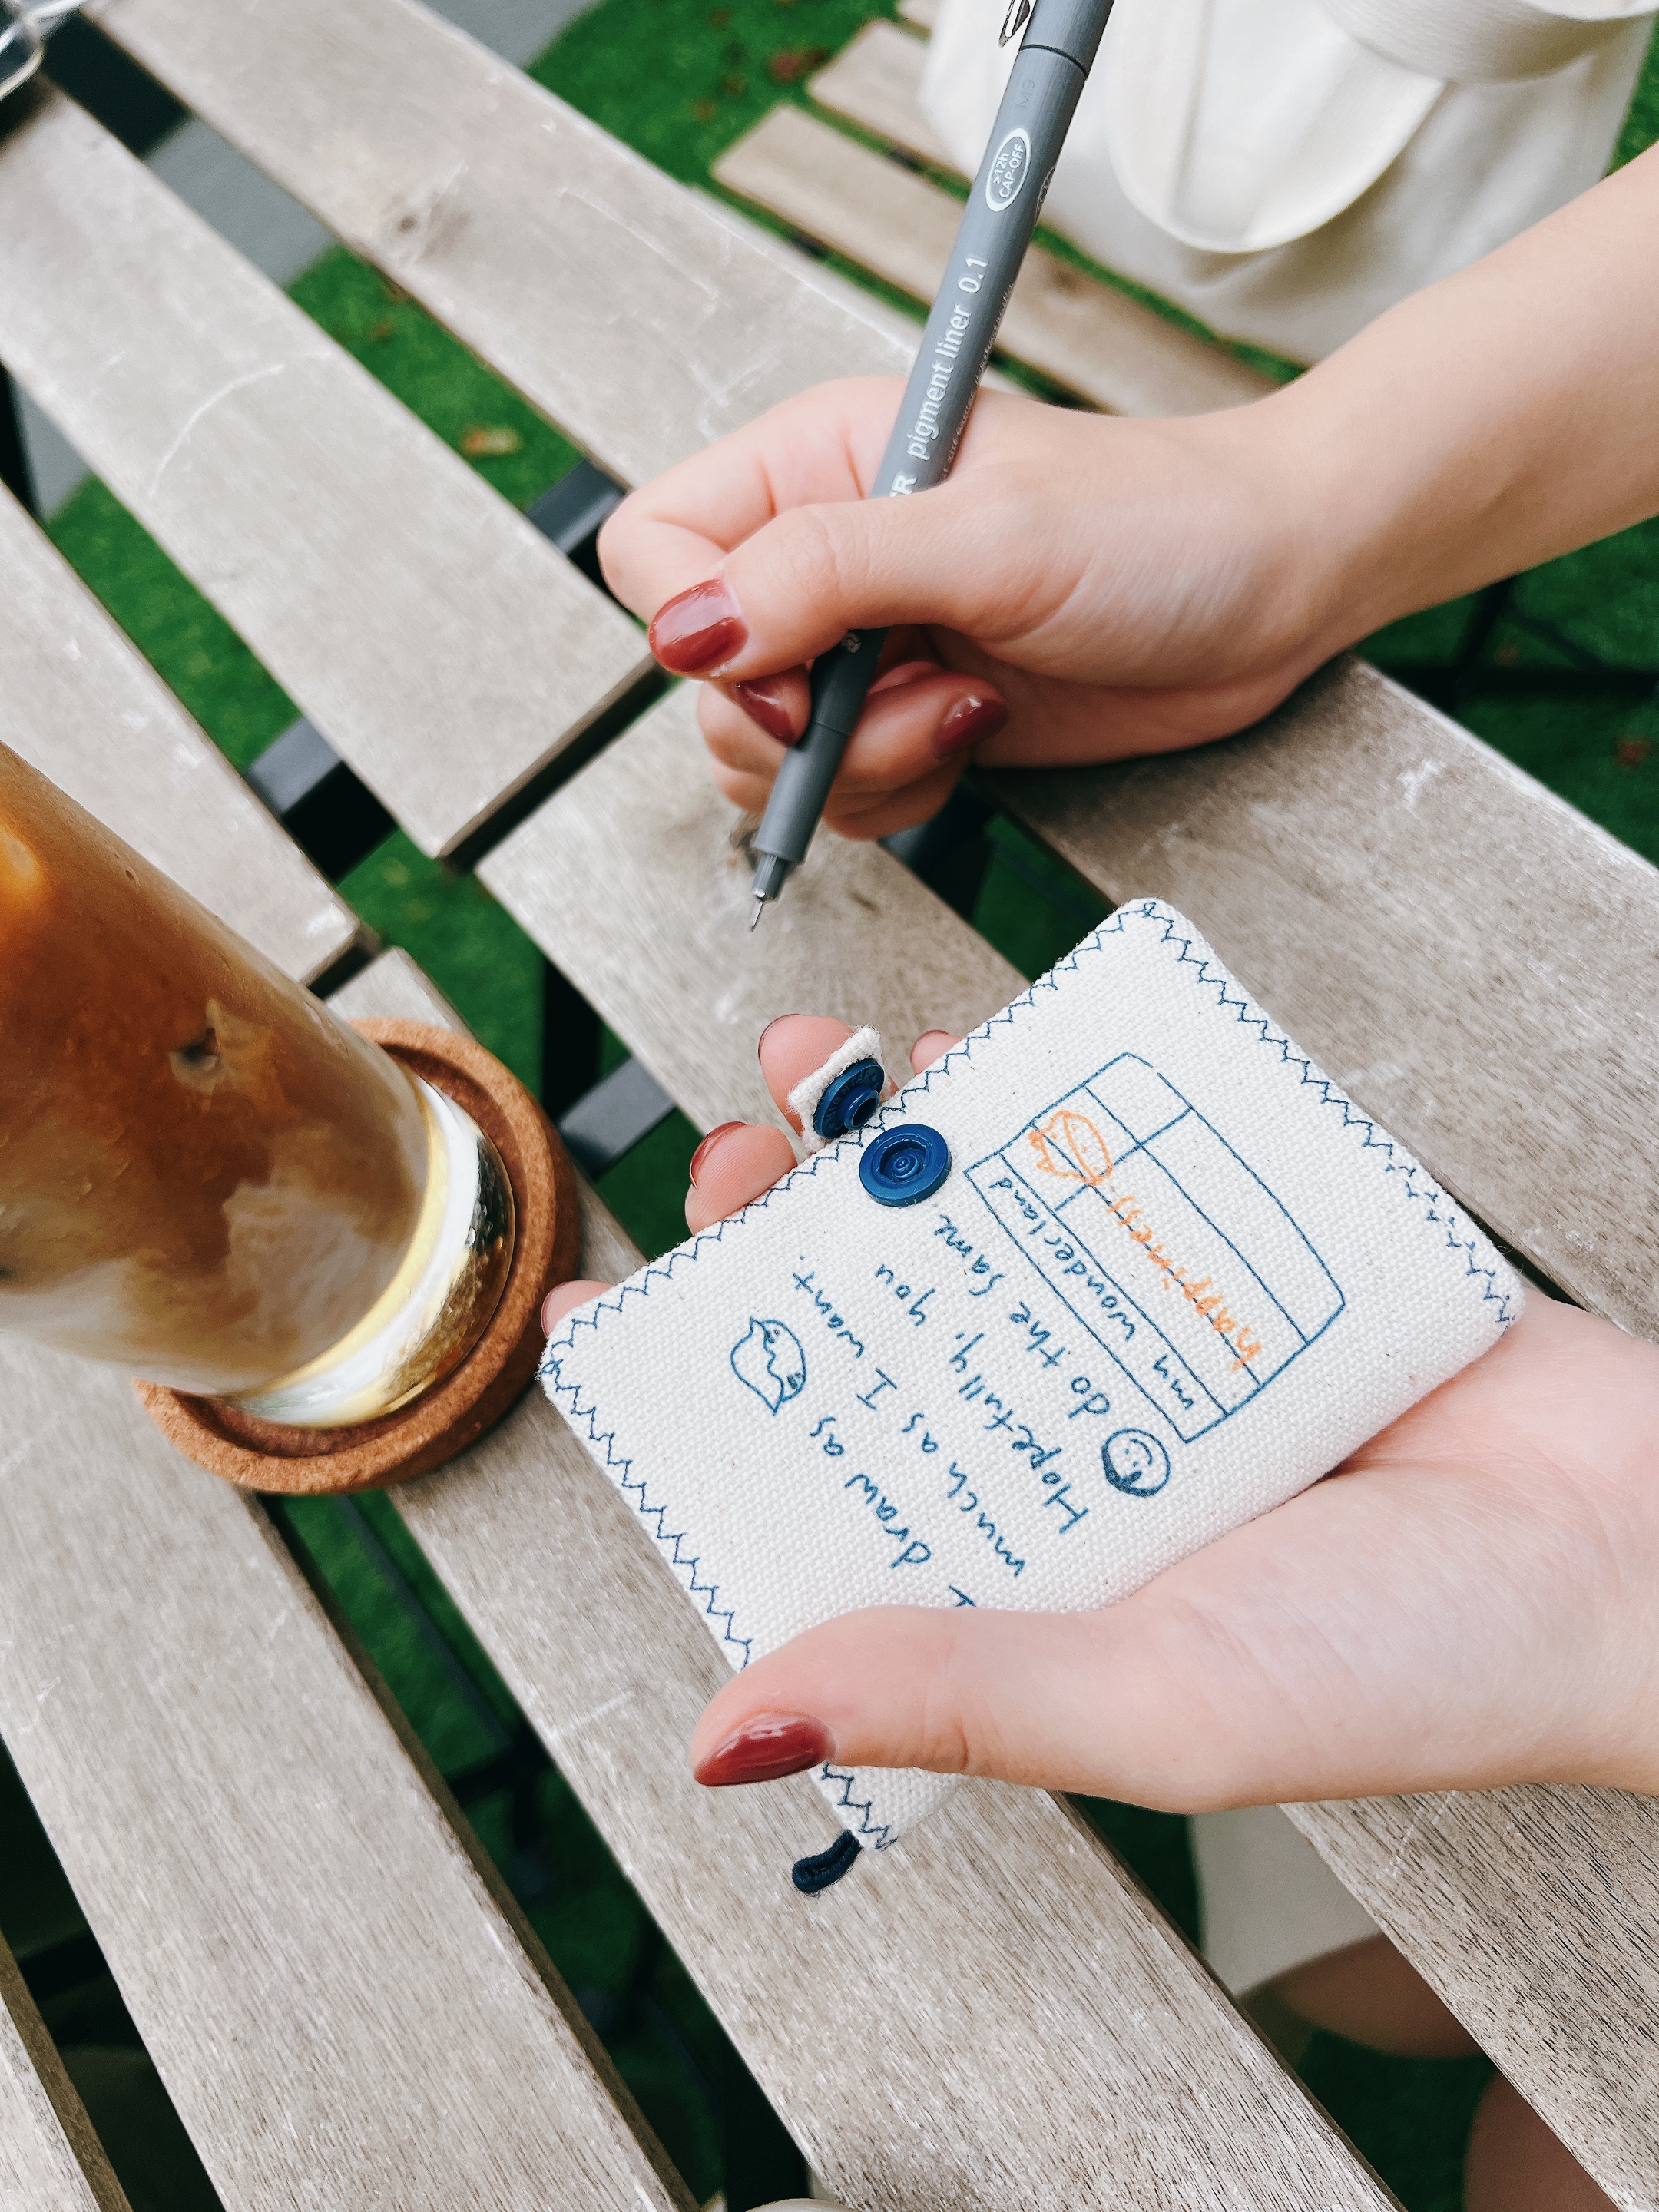 I draw as
much as I want.
Hopefully, you
do the same.
my wonderland
happiness
pigment liner 0.1
>12h
CAP-OFF